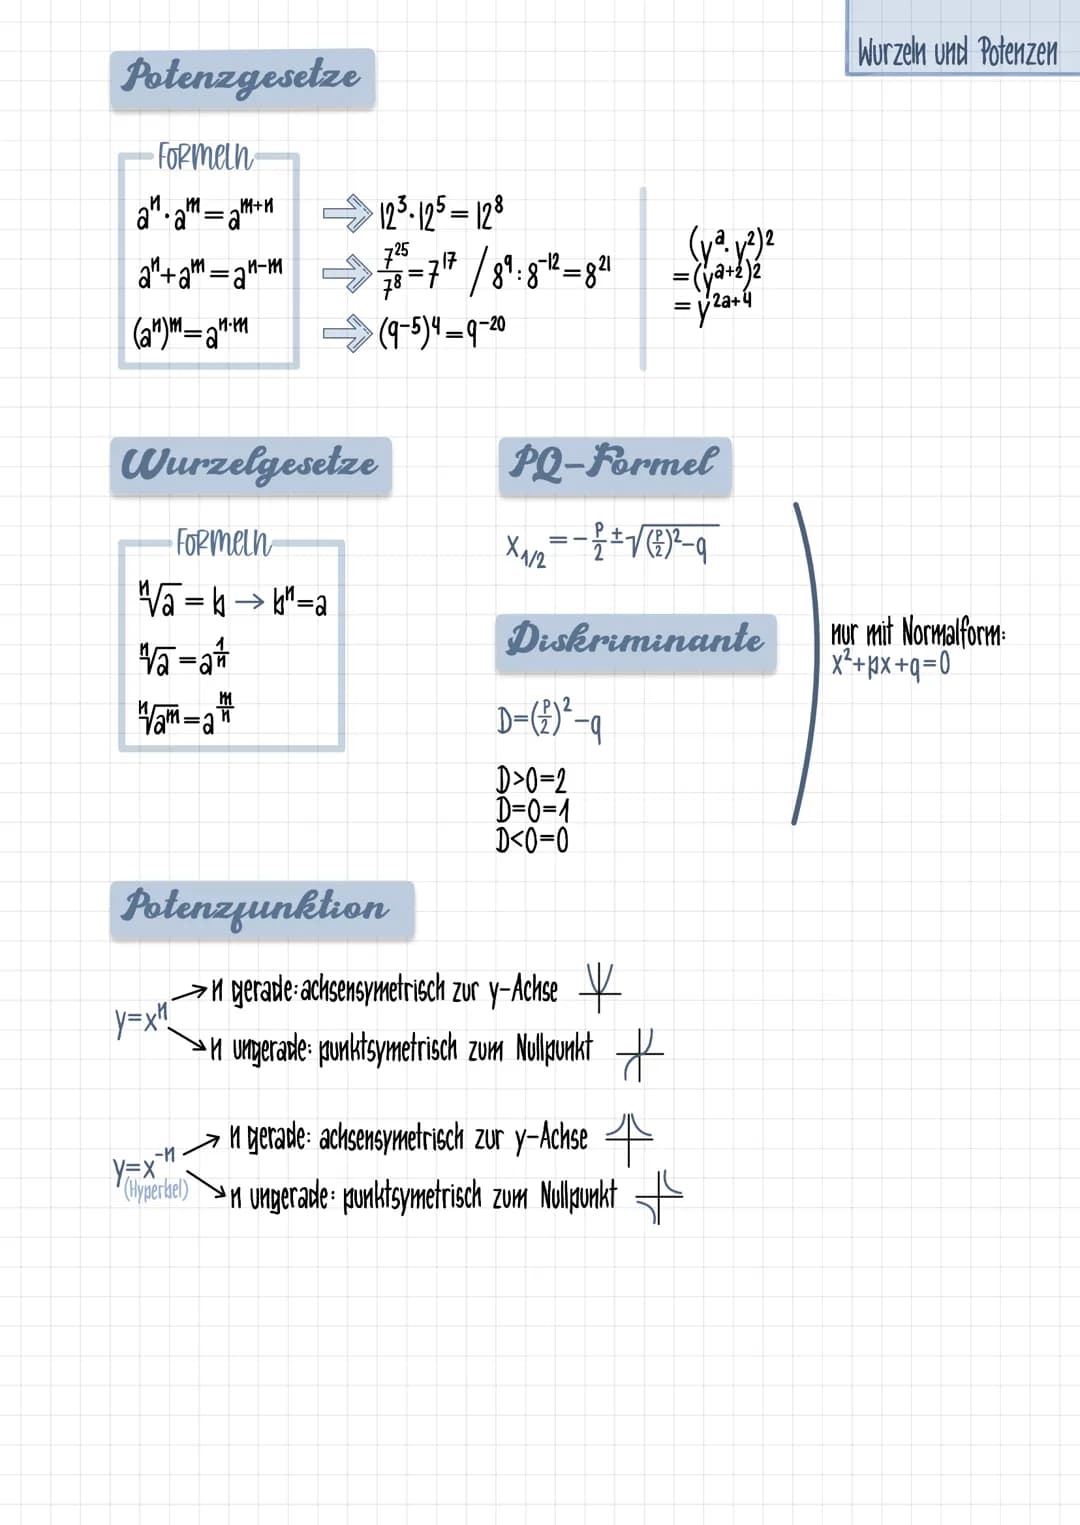 Wurzeln und Potenzen
Potenzgesetze
Formeln
aⁿ·aᵐ=aᵐ⁺ⁿ
⇒ 12³·12⁵=12⁸
aⁿ+aᵐ=aⁿ⁻ᵐ
⇒ 7²⁵/7⁸=7¹⁷ / 8⁹:8⁻¹²=8²¹
(aⁿ)ᵐ=aⁿ·ᵐ
⇒ (9⁻⁵)⁴=9⁻²⁰
(yᵃ·y²)²
=(yᵃ⁺²)²
=y²ᵃ⁺⁴
Wurzelgesetze
Formeln
ⁿ√a = b → bⁿ=a
ⁿ√a = a^(1/n)
ⁿ√aᵐ = a^(m/n)
PQ-Formel
x₁/₂ = -p/2 ± √((p/2)²-q)
Diskriminante
D=(p/2)²-q
D>0=2
D=0=1
D<0=0
nur mit Normalform:
x²+px+q=0
Potenzfunktion
y=xⁿ
→ n gerade: achsensymetrisch zur y-Achse
→ n ungerade: punktsymetrisch zum Nullpunkt
y=x⁻ⁿ
(Hyperbel)
→ n gerade: achsensymetrisch zur y-Achse
→ n ungerade: punktsymetrisch zum Nullpunkt